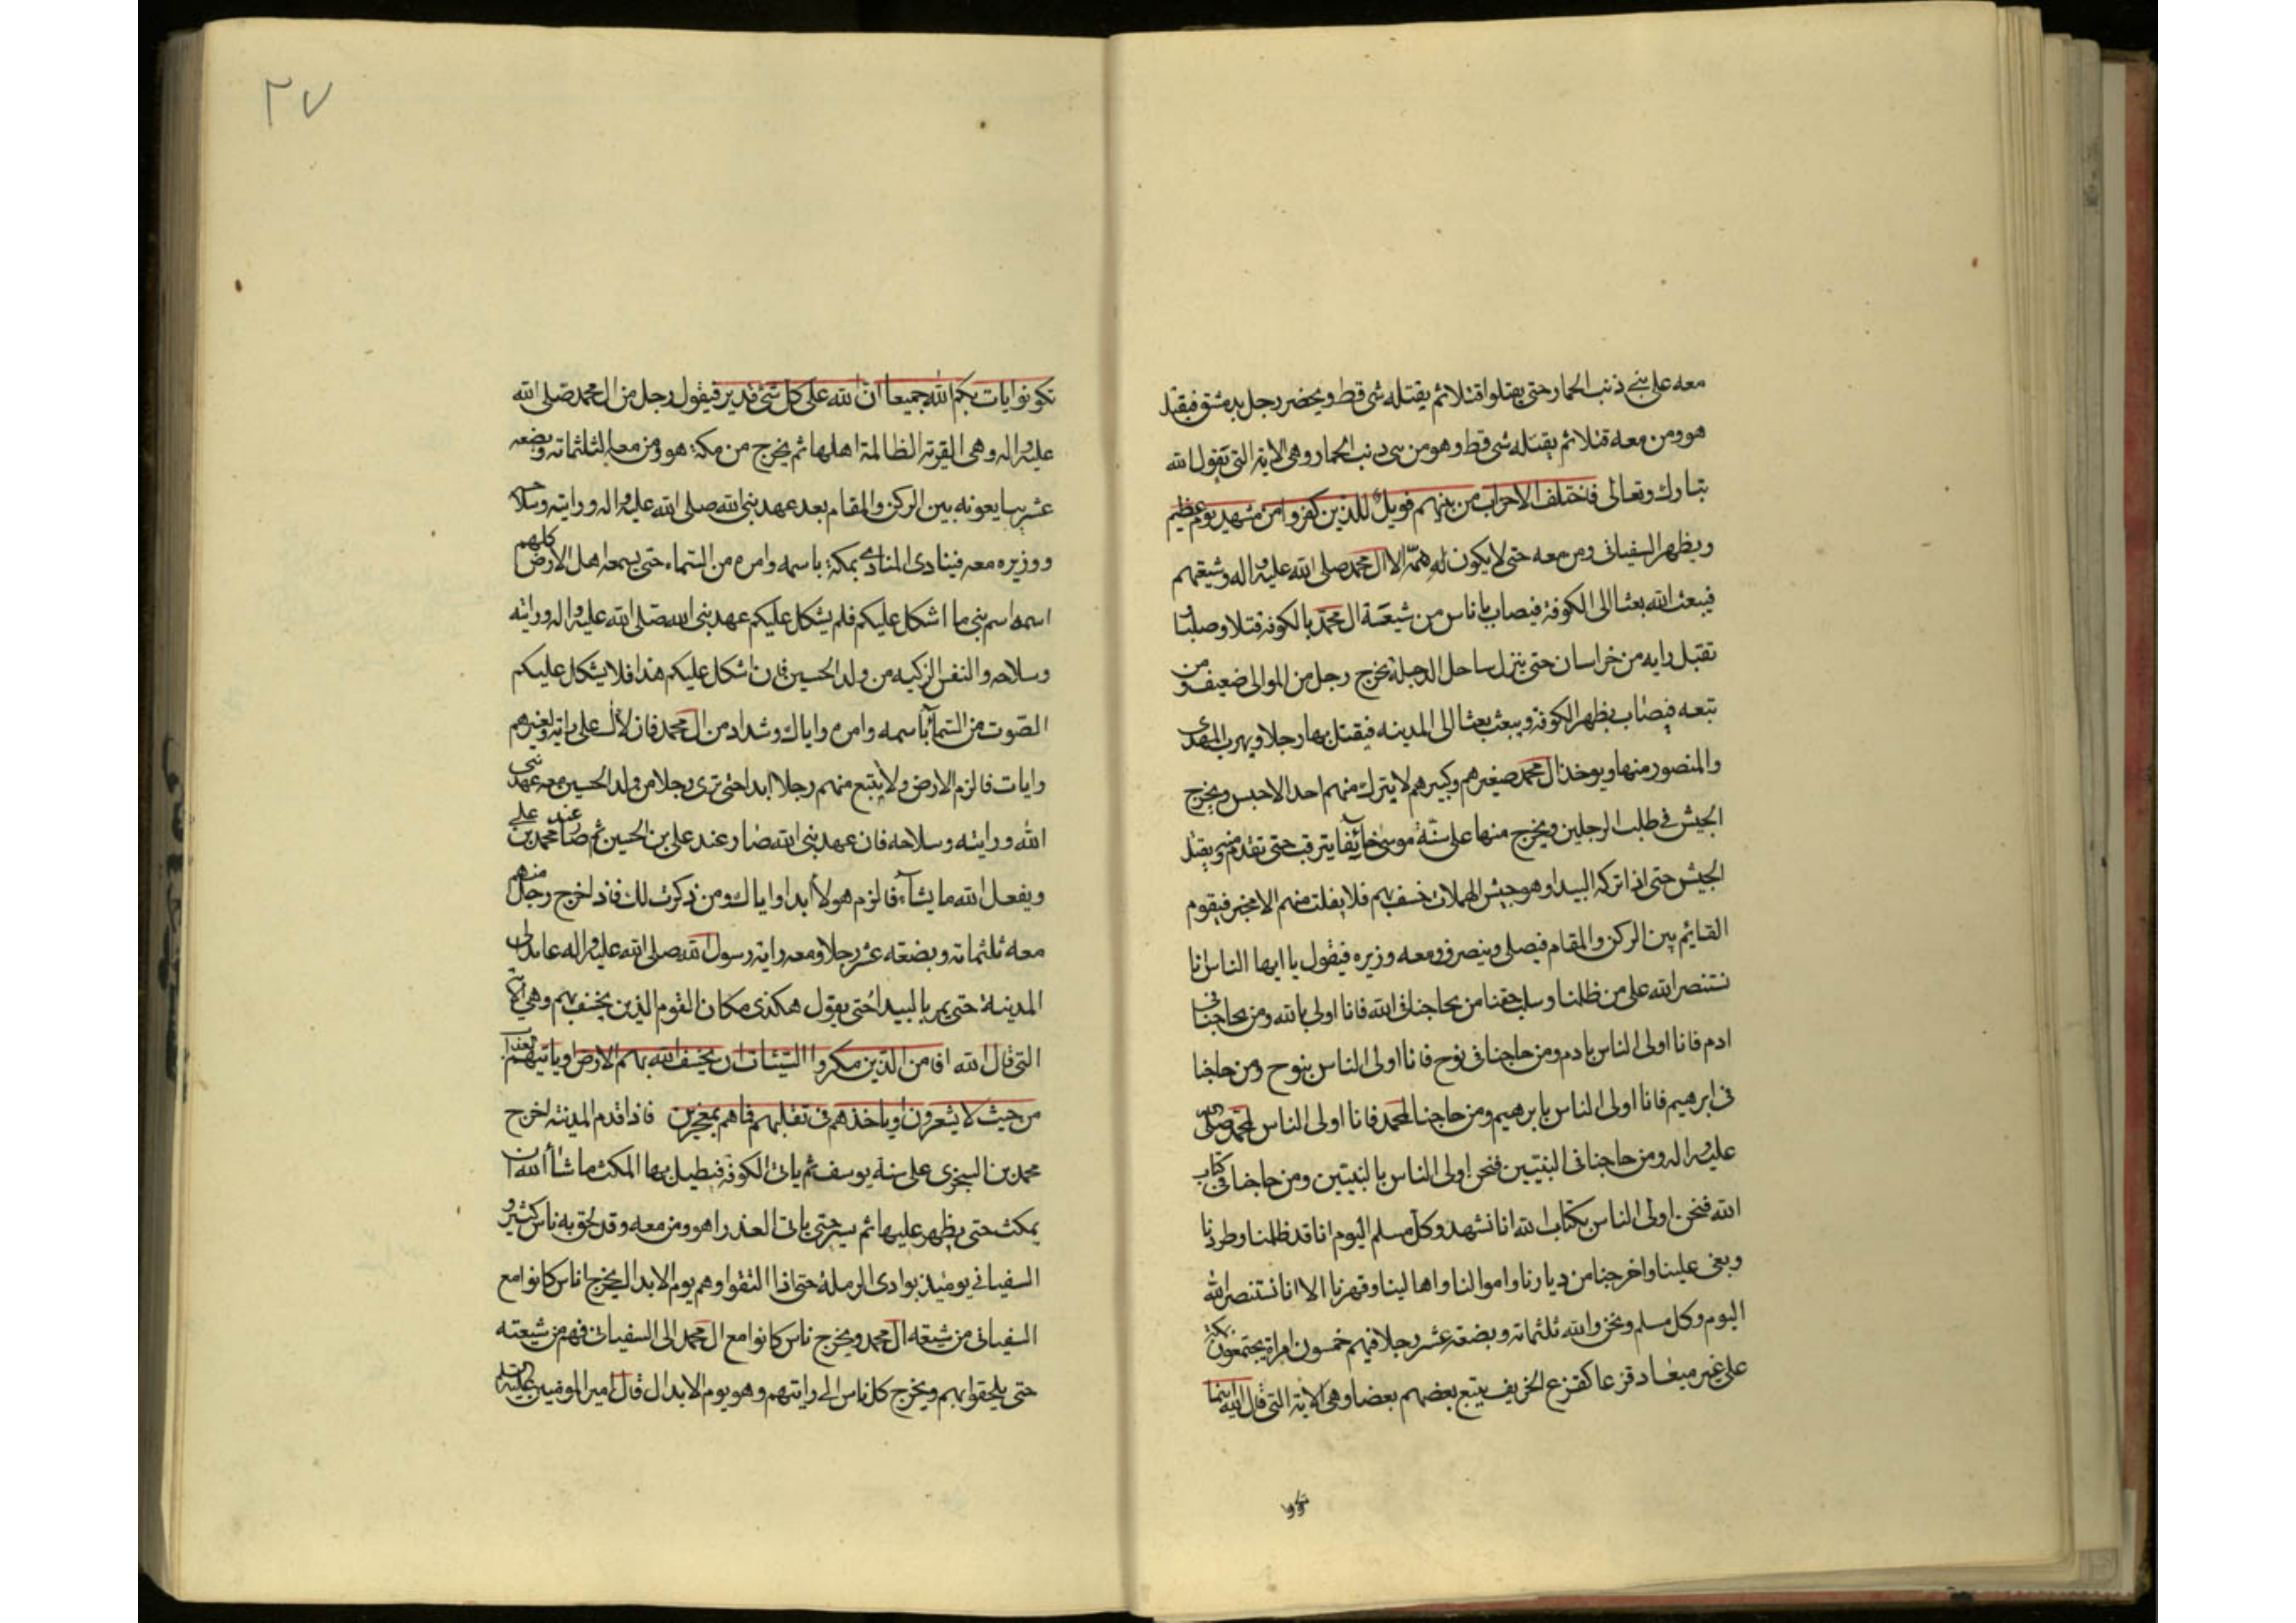 معه على بني ذنب الحمار حتى يقتلوا قتلا ثم يقتله شى قط ويحضر رجل بدمشق فيقتل
هو ومن معه قتلا ثم يقتله شى قط وهو من بنى ذنب الحمار وهى الاية التى يقول الله
تبارك وتعالى فاختلف الاحزاب من بينهم فويل للذين كفروا من مشهد يوم عظيم
ويظهر السفيانى ومن معه حتى لا يكون له همّة الا ال محمد صلى الله عليه واله وشيعتهم
فيبعث الله بعثا الى الكوفة فيصاب باناس من شيعة ال محمد بالكوفة قتلا وصلبا و
تقبل رايه من خراسان حتى ينزل ساحل الدجلة يخرج رجل من الموالى ضعيف ومن
تبعه فيصاب بظهر الكوفة ويبعث بعثا الى المدينه فيقتل بها رجلا ويهرب المهدى
والمنصور منها ويوخذ ال محمد صغيرهم وكبيرهم لا يترك منهم احد الا حبس ويخرج
الجيش فى طلب الرجلين ويخرج منها على سنّة موسى خائفا يترقب حتى تقدم ويقبل
الجيش حتى اذا نزله البيدا وهو جيش الهملات خسف بهم فلا يفلت منهم الا مخبر فيقوم
القائيم بين الركن والمقام فيصلى وينصرف ومعه وزيره فيقول يا ايها الناس انا
نستنصر الله على من ظلمنا وسلب حقنا من يحاجنا فى الله فانا اولى بالله ومن يحاجنا فى
ادم فانا اولى الناس بادم ومن حاجنا فى نوح فانا اولى الناس بنوح ومن حاجنا
فى ابرهيم فانا اولى الناس بابرهيم ومن حاجنا لمحمد فانا اولى الناس لمحمد صلى الله
عليه واله ومن حاجنا فى النبيين فنحن اولى الناس بالنبيين ومن حاجنا فى كتاب
الله فنحن اولى الناس بكتاب الله انا نشهد وكل مسلم اليوم انا قد ظلمنا وطردنا
وبغى علينا واخرجنا من ديارنا واموالنا واهالينا وقهرنا الا انا نستنصر الله
اليوم وكل مسلم ونحن والله ثلثماته وبضعة عشر رجلا فيهم خمسون امراة يجتمعون بمكة
على غير ميعاد قزعا كقزع الخريف يتبع بعضهم بعضا وهى الاية التى قال الله اينما
تكونوا
٢٧
تكونوا يات بكم الله جميعا ان الله على كل شئ قدير فيقول رجل من ال محمد صلى الله
عليه واله وهى القرية الظالمة اهلها ثم يخرج من مكة هو ومن معه الثلثماته وبضعه
عشر يبايعونه بين الركن والمقام بعد عهد نبى الله صلى الله عليه واله ورايته وسلاحه
ووزيره معه فينادى المنادى بمكة باسمه وامره من السماء حتى يسمعه اهل الارض كلهم
اسمه اسم نبى ما اشكل عليكم فلم يشكل عليكم عهد نبى الله صلى الله عليه واله ورايته
وسلاحه والنفس الزكيه من ولد الحسين فان اشكل عليكم هذا فلا يشكل عليكم
الصّوت من السمآ باسمه وامره واياك وشداد من ال محمد فان لال على راية ولغيرهم
رايات فالزم الارض ولا يتبع منهم رجلا ابدا حتى ترى رجلا من ولد الحسين معه عهد نبى
الله ورايته وسلاحه فان عهد نبى الله صار عند على بن الحسين ثم صار عند محمد بن على
ويفعل الله ما يشآء فالزم هولا ابدا واياك ومن ذكرت لك فاذا خرج رجل منهم
معه ثلثماته وبضعته عشر رجلا ومعه راية رسول الله صلى الله عليه واله عامدا الى
المدينة حتى يمر بالبيدا حتى يقول هكذى مكان القوم الذين يخسف بهم وهى الاية
التى قال الله افامن الذين مكروا السيئات ان يخسف الله بهم الارض او ياتيهم العذاب
من حيث لا يشعرون او ياخذهم فى تقلبهم فما هم بمعجزين فاذا قدم المدينة اخرج
محمد بن السجزى على سنة يوسف ثم ياتى الكوفة فيطيل بها المكث ما شآ الله ان
يمكث حتى يظهر عليها ثم يسير حتى ياتى العذرا هو ومن معه وقد لحق به ناس كثير و
السفيانى يوميذ بوادى الرملة حتى اذا التقوا وهم يوم الابدال يخرج اناس كانوا مع
السفيانى من شيعه ال محمد ويخرج ناس كانوا مع ال محمد الى السفيانى فهم من شيعته
حتى يلحقوا بهم ويخرج كل ناس الى رايتهم وهو يوم الابدال قال امير المومنين عليه السلم